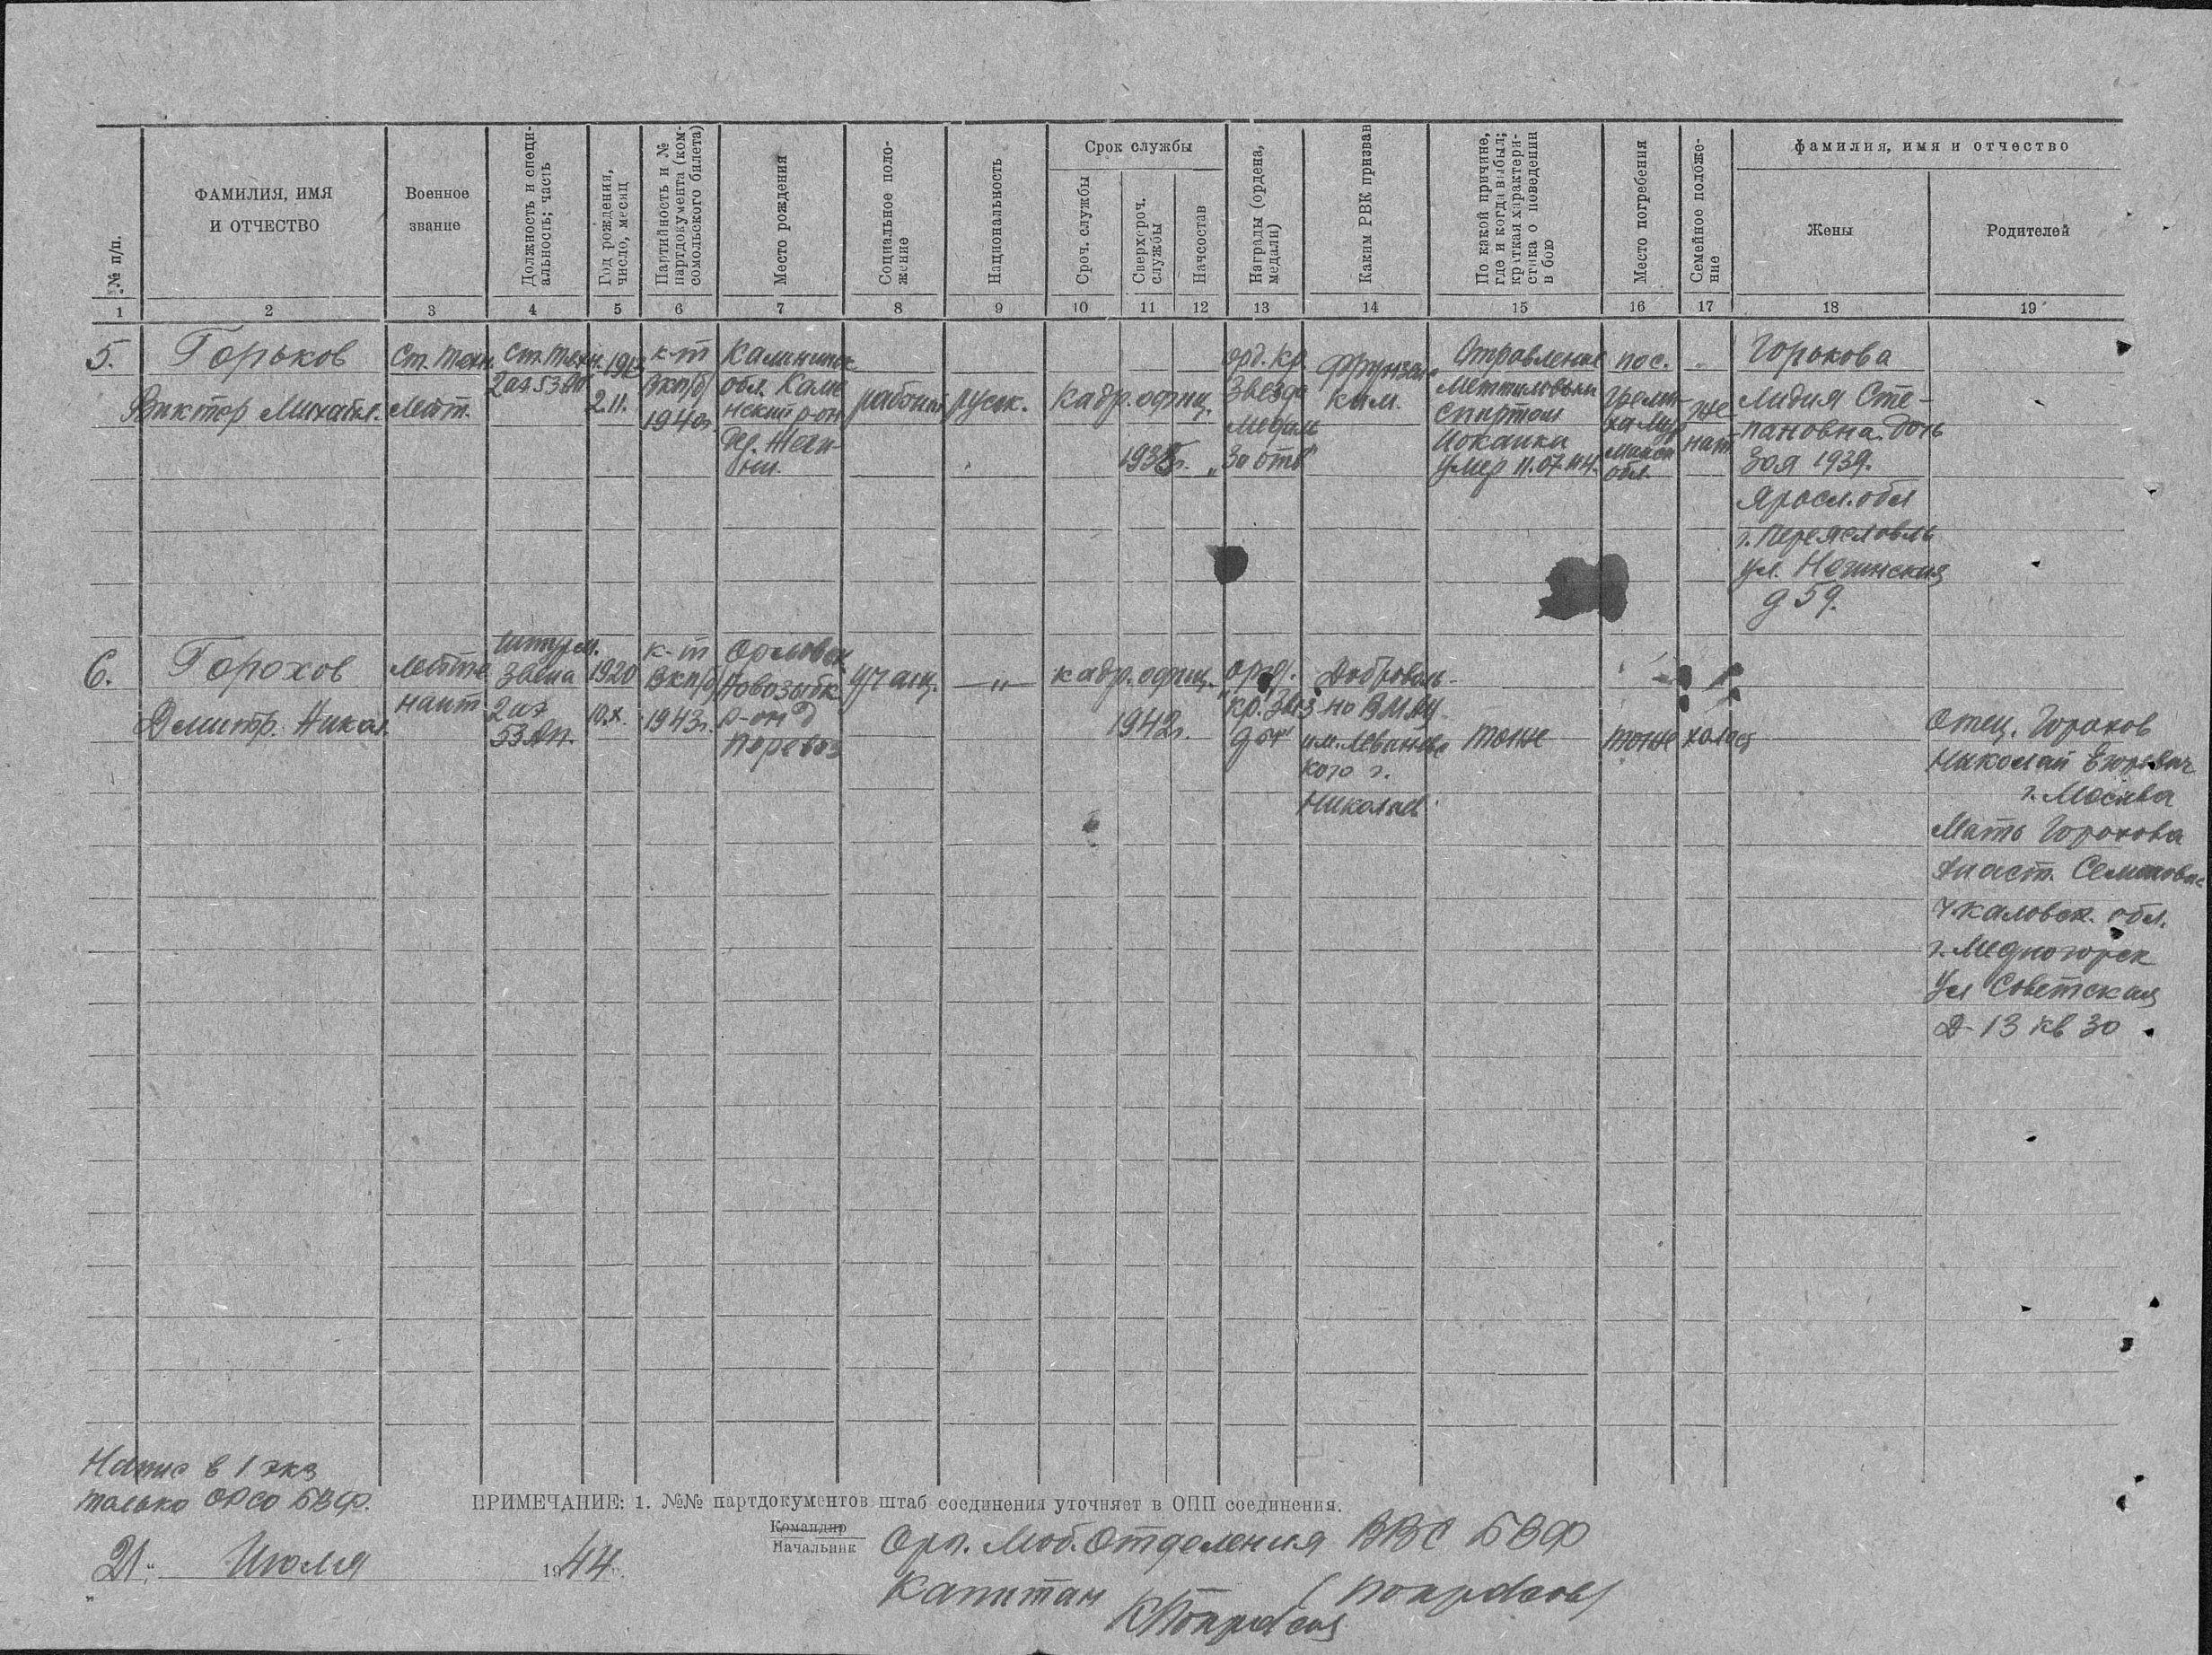 № п/п.
ФАМИЛИЯ, ИМЯ
И ОТЧЕСТВО
Военное
звание
Должность и специ-
альность; часть
Год рождения,
число, месяц
Партийность и №
партдокумента (ком-
сомольского билета)
Место рождения
Социальное поло-
жение
Национальность
Срок службы
Сроч. службы
Сверхсроч.
службы
Начсостав
Награды (ордена,
медали)
Каким РВК призван
По какой причине,
где и когда выбыл;
краткая характери-
стика о поведении
в бою
Место погребения
Семейное положе-
ние
фамилия, имя и отчество
Жены
Родителей
1 2 3 4 5 6 7 8 9 10 11 12 13 14 15 16 17 18 19
5.
Горьков
Виктор Михайл.
Ст. техн.
лейт.
Ст. техн.
2 аэ 53 ап
2.11.
к-т
ВКП/б/
1940г.
Калининск.
обл. Каме
нский р-он
дер.
рабочий
русск.
Кадр. офиц.
1938г.
орд. Кр.
Звезда
Медаль
"За отв"
Отравление
метиловым
спиртом
Иоканки
умер 11.07.44.
пос.
обл.
же
нат
Горькова
Лидия Сте-
пановна. дочь
Зоя 1939.
Яросл. обл
г. Переяславль
ул.
д 59.
6.
Горохов
Дмитр. Никол.
лейте
нант
штурм.
звена
2 аэ
53 Ап.
1920
10.X.
к-т
ВКП/б/
1943г.
Орловск
Новозыбк
р-он д
Перевоз
учащ.
—"—
кадр. офиц.
1942г.
орд.
"Кр. Зв"
Доброволь-
но ВМАУ
им. Леваневс
кого г.
Николаев
тоже
тоже
холост
Отец. Горохов
Николай
г. Москва
Мать Горохова
Анаст. Семеновна
Чкаловск. обл.
г. Медногорск
Ул Советская
Д-13 кв 30
Напис в 1 экз
только
ПРИМЕЧАНИЕ: 1. №№ партдокументов штаб соединения уточняет в ОПП соединения.
Командир
Начальник Орг. Моб. Отделения ВВС БВФ
„21“ Июля 1944 г.
Капитан